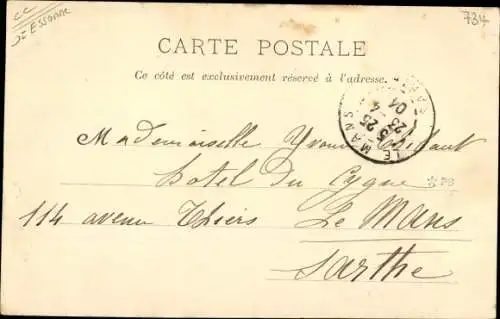 CC
Essonne
734
CARTE POSTALE
Ce côté est exclusivement réservé à l'adresse.
LE MANS
25
04
Mademoiselle Yvonne
hotel du Cygne
PB
114 avenue Thiers Le Mans
Sarthe